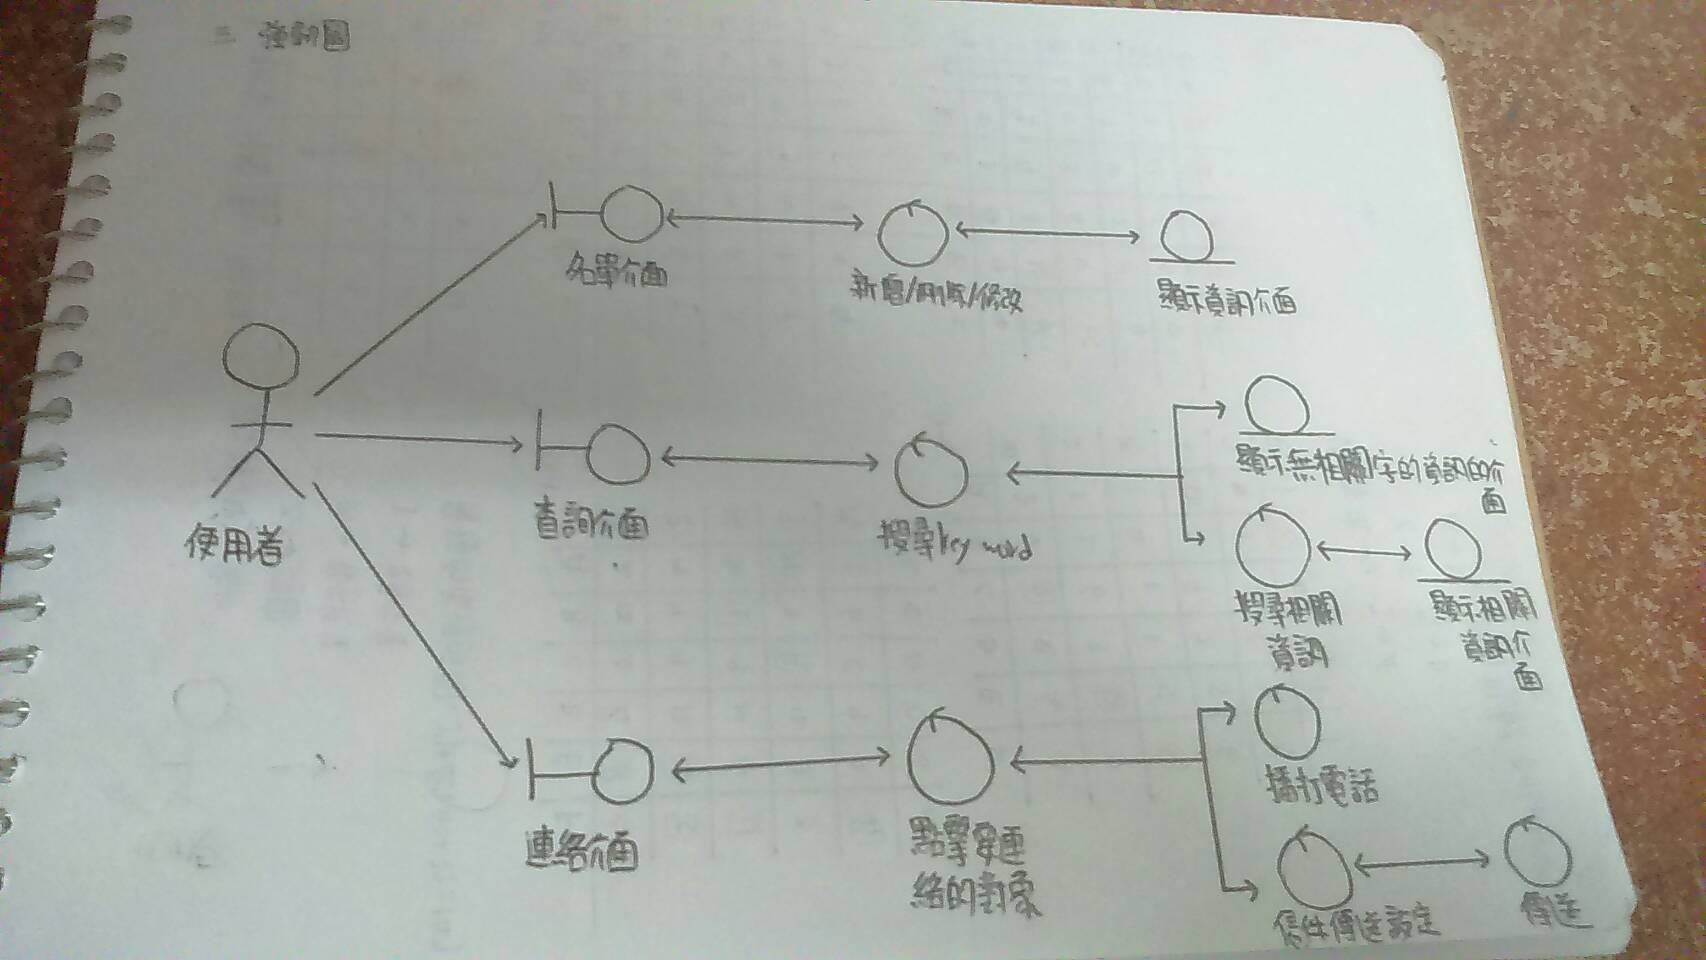 三 強韌圖
名單介面
新增/刪除/修改
顯示資訊介面
使用者
查詢介面
搜尋key word
顯示無相關字的資訊的介
面
搜尋相關
資訊
顯示相關
資訊介
面
連絡介面
點擊要連
絡的對象
播打電話
信件傳送設定
傳送